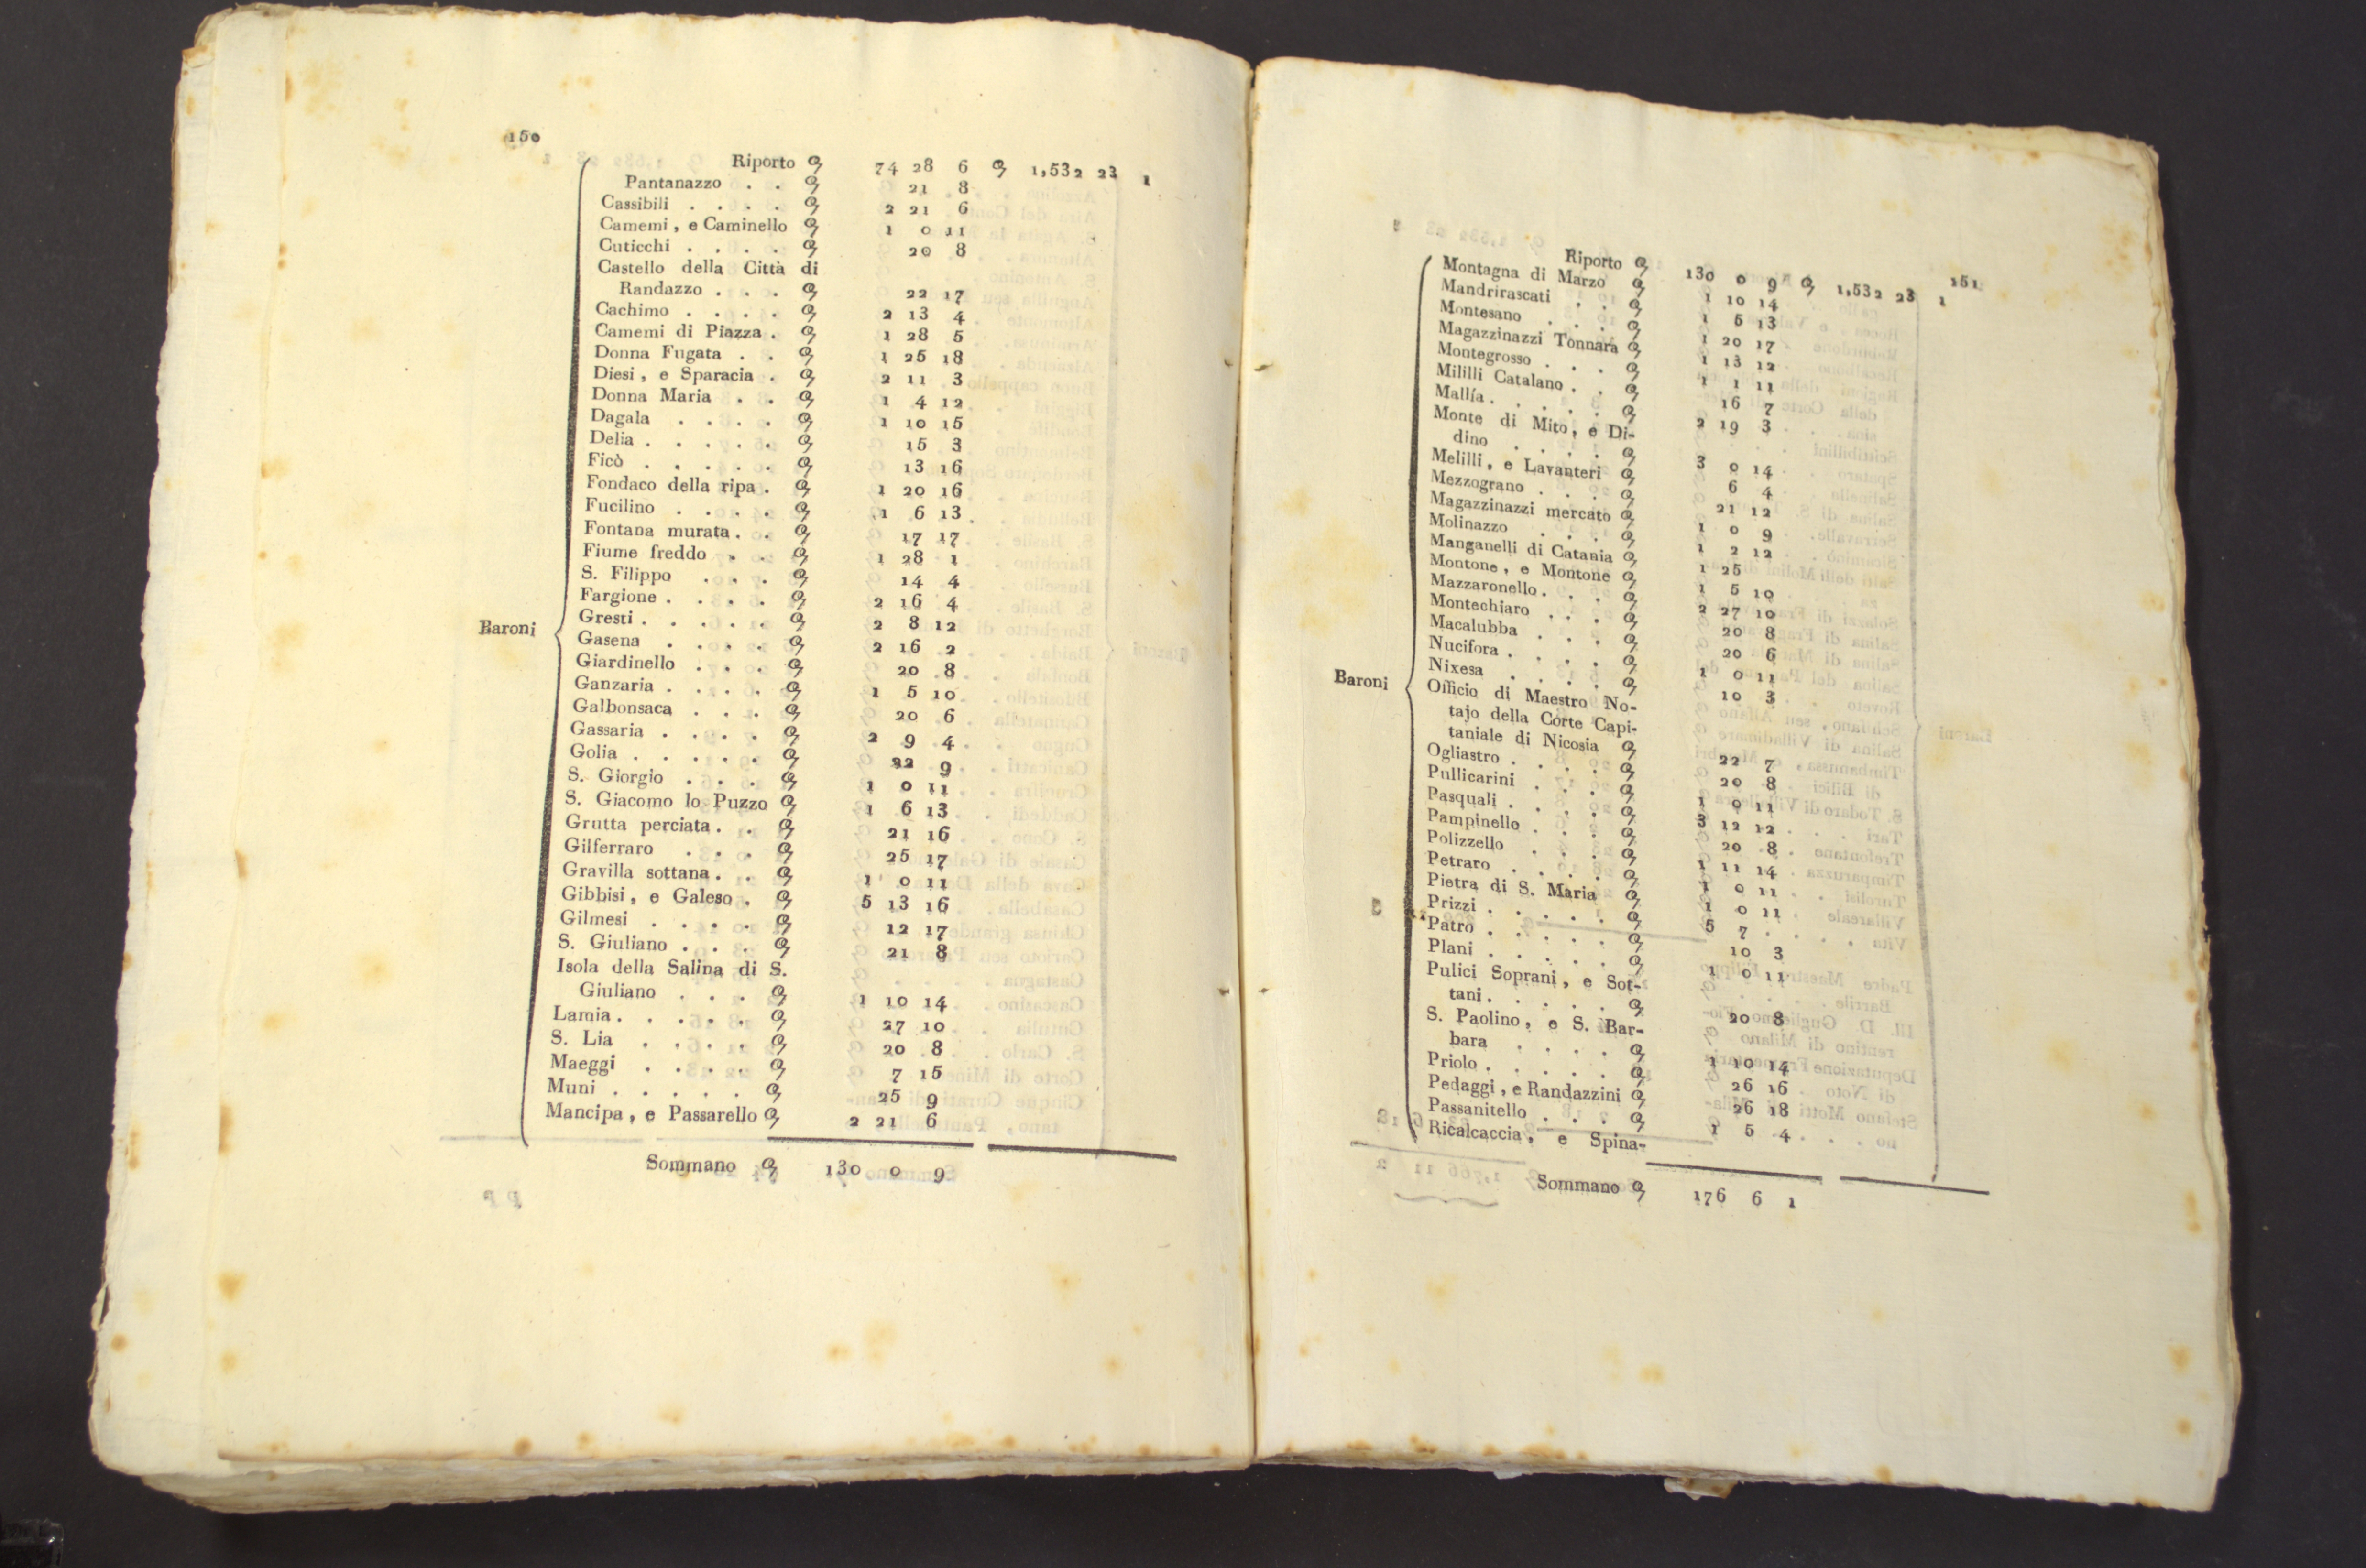 150
Riporto Q 74 28 6 Q 1,532 23 1
Pantanazzo . . Q 21 8
Cassibili . . . . Q 2 21 6
Camemi, e Caminello Q 1 0 11
Cuticchi . . . . Q 20 8
Castello della Città di
Randazzo . . . Q 22 17
Cachimo . . . . Q 2 13 4
Camemi di Piazza . Q 1 28 5
Donna Fugata . . Q 1 25 18
Diesi, e Sparacia . Q 2 11 3
Donna Maria . . Q 1 4 12
Dagala . . . . Q 1 10 15
Delia . . . . . Q 15 3
Ficò . . . . . Q 13 16
Fondaco della ripa . Q 1 20 16
Fucilino . . . . Q 1 6 13
Fontana murata . . Q 17 17
Fiume freddo . . Q 1 28 1
S. Filippo . . . Q 14 4
Fargione . . . . Q 2 16 4
Gresti . . . . . Q 2 8 12
Baroni
Gasena . . . . Q 2 16 2
Giardinello . . . Q 20 8
Ganzaria . . . . Q 1 5 10
Galbonsaca . . . Q 20 6
Gassaria . . . . Q 2 9 4
Golia . . . . . Q 22 9
S. Giorgio . . . Q 1 0 11
S. Giacomo lo Puzzo Q 1 6 13
Grutta perciata . . Q 21 16
Gilferraro . . . Q 25 17
Gravilla sottana . . Q 1 0 11
Gibbisi, e Galeso . Q 5 13 16
Gilmesi . . . . Q 12 17
S. Giuliano . . . Q 21 8
Isola della Salina di S.
Giuliano . . . Q 1 10 14
Lamia . . . . . Q 27 10
S. Lia . . . . Q 20 8
Maeggi . . . . Q 7 15
Muni . . . . . Q 25 9
Mancipa, e Passarello Q 2 21 6
Sommano Q 130 0 9
151
Riporto Q 130 0 9 Q 1,532 23 1
Montagna di Marzo Q 1 10 14
Mandrirascati . . Q 1 6 13
Montesano . . . Q 1 20 17
Magazzinazzi Tonnara Q 1 13 12
Montegrosso . . . Q 1 1 11
Mililli Catalano . . Q 16 7
Mallía . . . . . Q 2 19 3
Monte di Mito, e Di-
dino . . . . Q 3 0 14
Melilli, e Lavanteri Q 6 4
Mezzograno . . . Q 21 12
Magazzinazzi mercato Q 1 0 9
Molinazzo . . . Q 1 2 12
Manganelli di Catania Q 1 25
Montone, e Montone Q 1 5 10
Mazzaronello . . . Q 2 27 10
Montechiaro . . . Q 20 8
Macalubba . . . Q 20 6
Nucifora . . . . Q 1 0 11
Nixesa . . . . Q 10 3
Baroni
Officio di Maestro No-
tajo della Corte Capi-
taniale di Nicosia Q 22 7
Ogliastro . . . . Q 20 8
Pullicarini . . . Q 1 0 11
Pasquali . . . . Q 3 12 12
Pampinello . . . Q 20 8
Polizzello . . . Q 1 11 14
Petraro . . . . Q 1 0 11
Pietra di S. Maria Q 1 0 11
Prizzi . . . . . Q 5 7
Patro . . . . . Q 10 3
Plani . . . . . Q 1 0 11
Pulici Soprani, e Sot-
tani . . . . . Q 20 8
S. Paolino, e S. Bar-
bara . . . . Q 1 10 14
Priolo . . . . . Q 26 16
Pedaggi, e Randazzini Q 26 18
Passanitello . . . Q 1 5 4
Ricalcaccia, e Spina-
Sommano Q 176 6 1